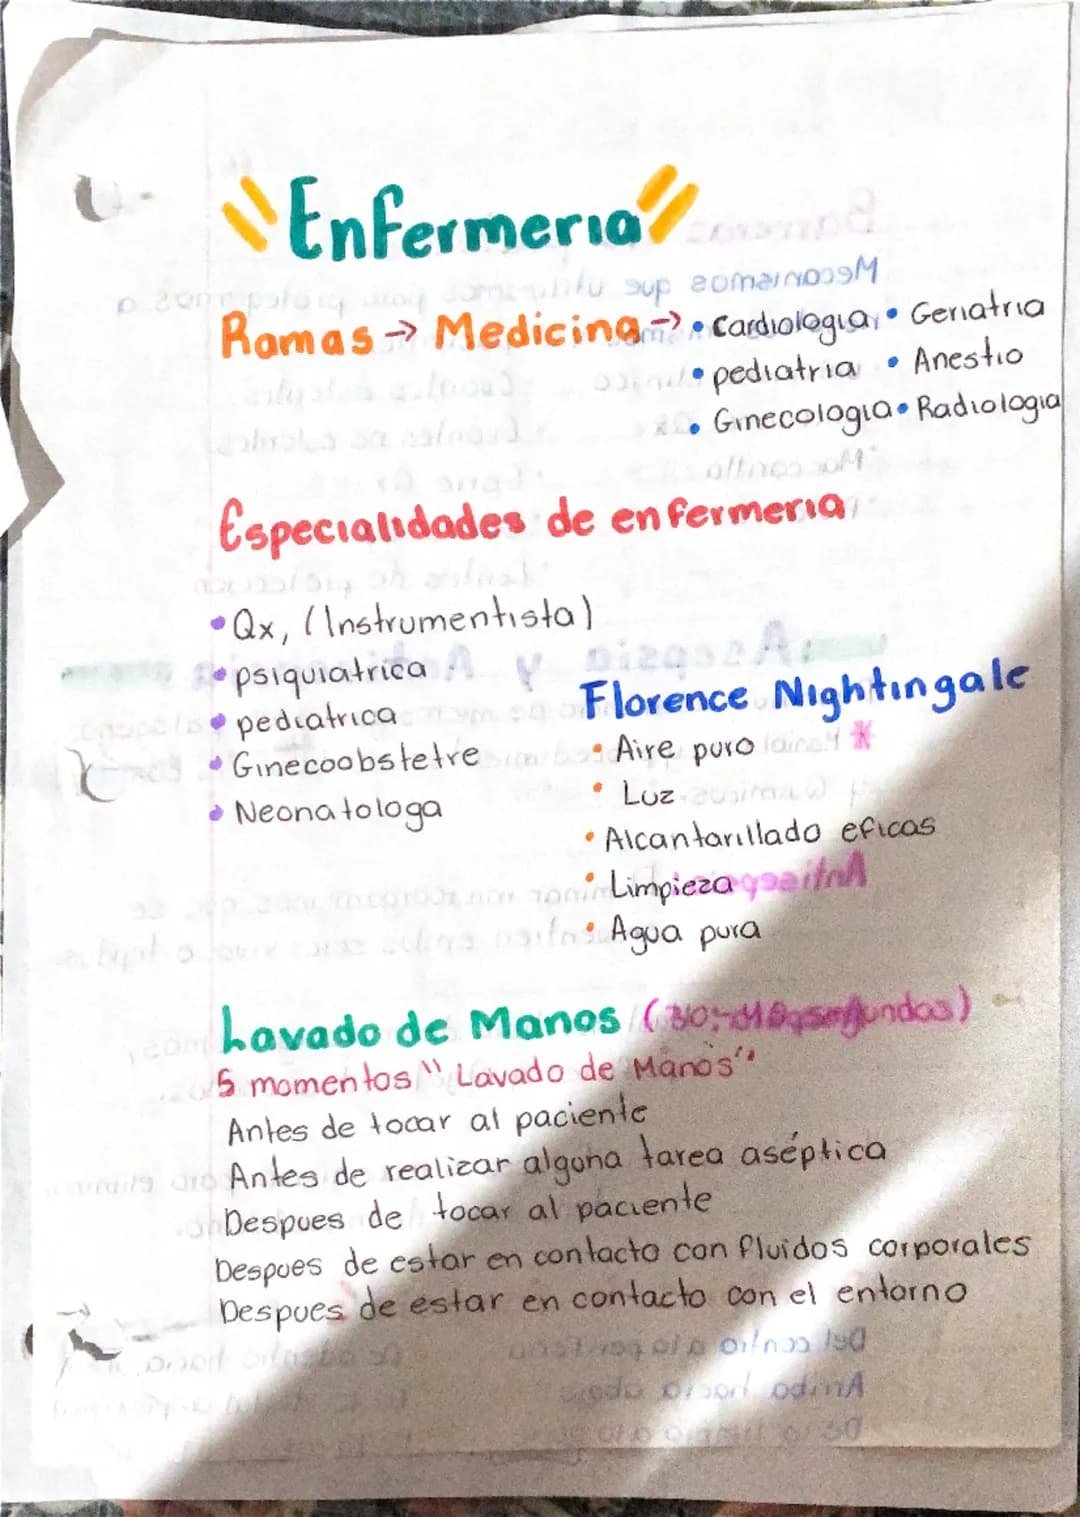 "Enfermeria"
Ramas → Medicina → • Cardiologia • Geriatria
• pediatria • Anestio
• Ginecologia • Radiologia
Especialidades de enfermeria
• Qx, (Instrumentista)
• psiquiatrica
• pediatrica
• Ginecoobstetre
• Neonatologa
Florence Nightingale
• Aire puro
• Luz
• Alcantarillado eficas
• Limpieza
• Agua pura
Lavado de Manos segundos)
5 momentos "Lavado de Manos"
Antes de tocar al paciente
Antes de realizar alguna tarea aséptica
Despues de tocar al paciente
Despues de estar en contacto con fluidos corporales
Despues de estar en contacto con el entorno